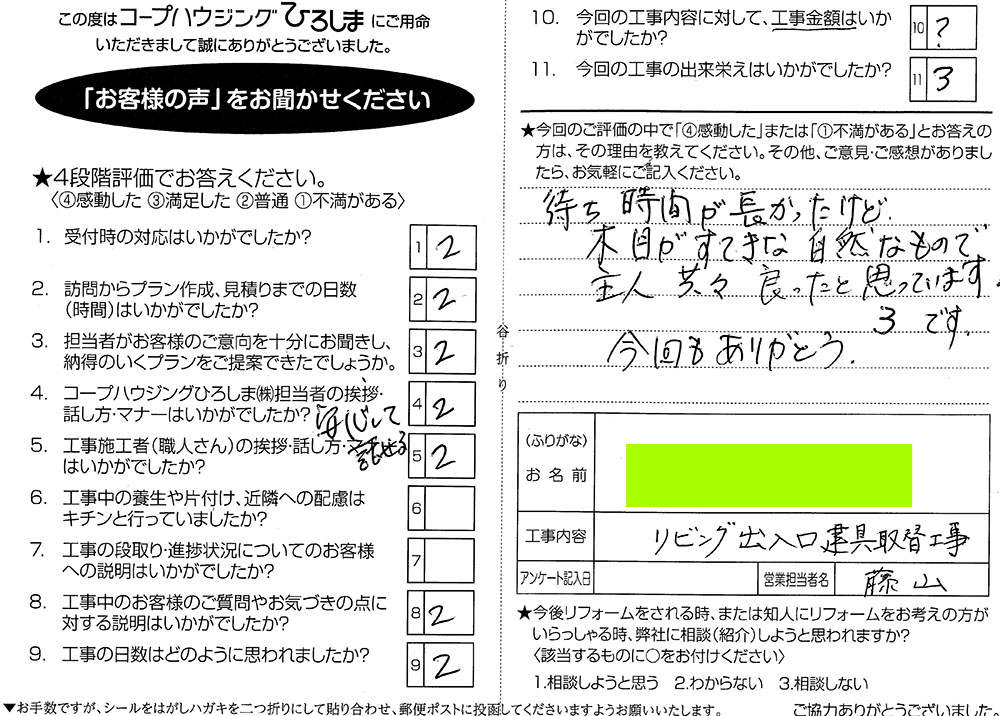 この度はコープハウジングひろしまにご用命
いただきまして誠にありがとうございました。
「お客様の声」をお聞かせください
★4段階評価でお答えください。
〈④感動した ③満足した ②普通 ①不満がある〉
1. 受付時の対応はいかがでしたか? 1 2
2. 訪問からプラン作成、見積りまでの日数
(時間)はいかがでしたか? 2 2
3. 担当者がお客様のご意向を十分にお聞きし、
納得のいくプランをご提案できたでしょうか。 3 2
4. コープハウジングひろしま㈱担当者の挨拶・
話し方・マナーはいかがでしたか? 4 2
安心して
話せる
5. 工事施工者(職人さん)の挨拶・話し方・
はいかがでしたか? 5 2
6. 工事中の養生や片付け、近隣への配慮は
キチンと行っていましたか? 6
7. 工事の段取り・進捗状況についてのお客様
への説明はいかがでしたか? 7
8. 工事中のお客様のご質問やお気づきの点に
対する説明はいかがでしたか? 8 2
9. 工事の日数はどのように思われましたか? 9 2
▼お手数ですが、シールをはがしハガキを二つ折りにして貼り合わせ、郵便ポストに投函してくださいますようお願いいたします。
谷折り
10. 今回の工事内容に対して、工事金額はいか
がでしたか? 10 ?
11. 今回の工事の出来栄えはいかがでしたか? 11 3
★今回のご評価の中で「④感動した」または「①不満がある」とお答えの
方は、その理由を教えてください。その他、ご意見・ご感想がありまし
たら、お気軽にご記入ください。
待ち時間が長かったけど、
木目がすてきな自然なもので
主人共々良ったと思っています。
3です。
今回もありがとう.
(ふりがな)
お名前
工事内容 リビング出入口建具取替工事
アンケート記入日 営業担当者名 藤山
★今後リフォームをされる時、または知人にリフォームをお考えの方が
いらっしゃる時、弊社に相談(紹介)しようと思われますか?
〈該当するものに○をお付けください〉
1.相談しようと思う 2.わからない 3.相談しない
ご協力ありがとうございました。